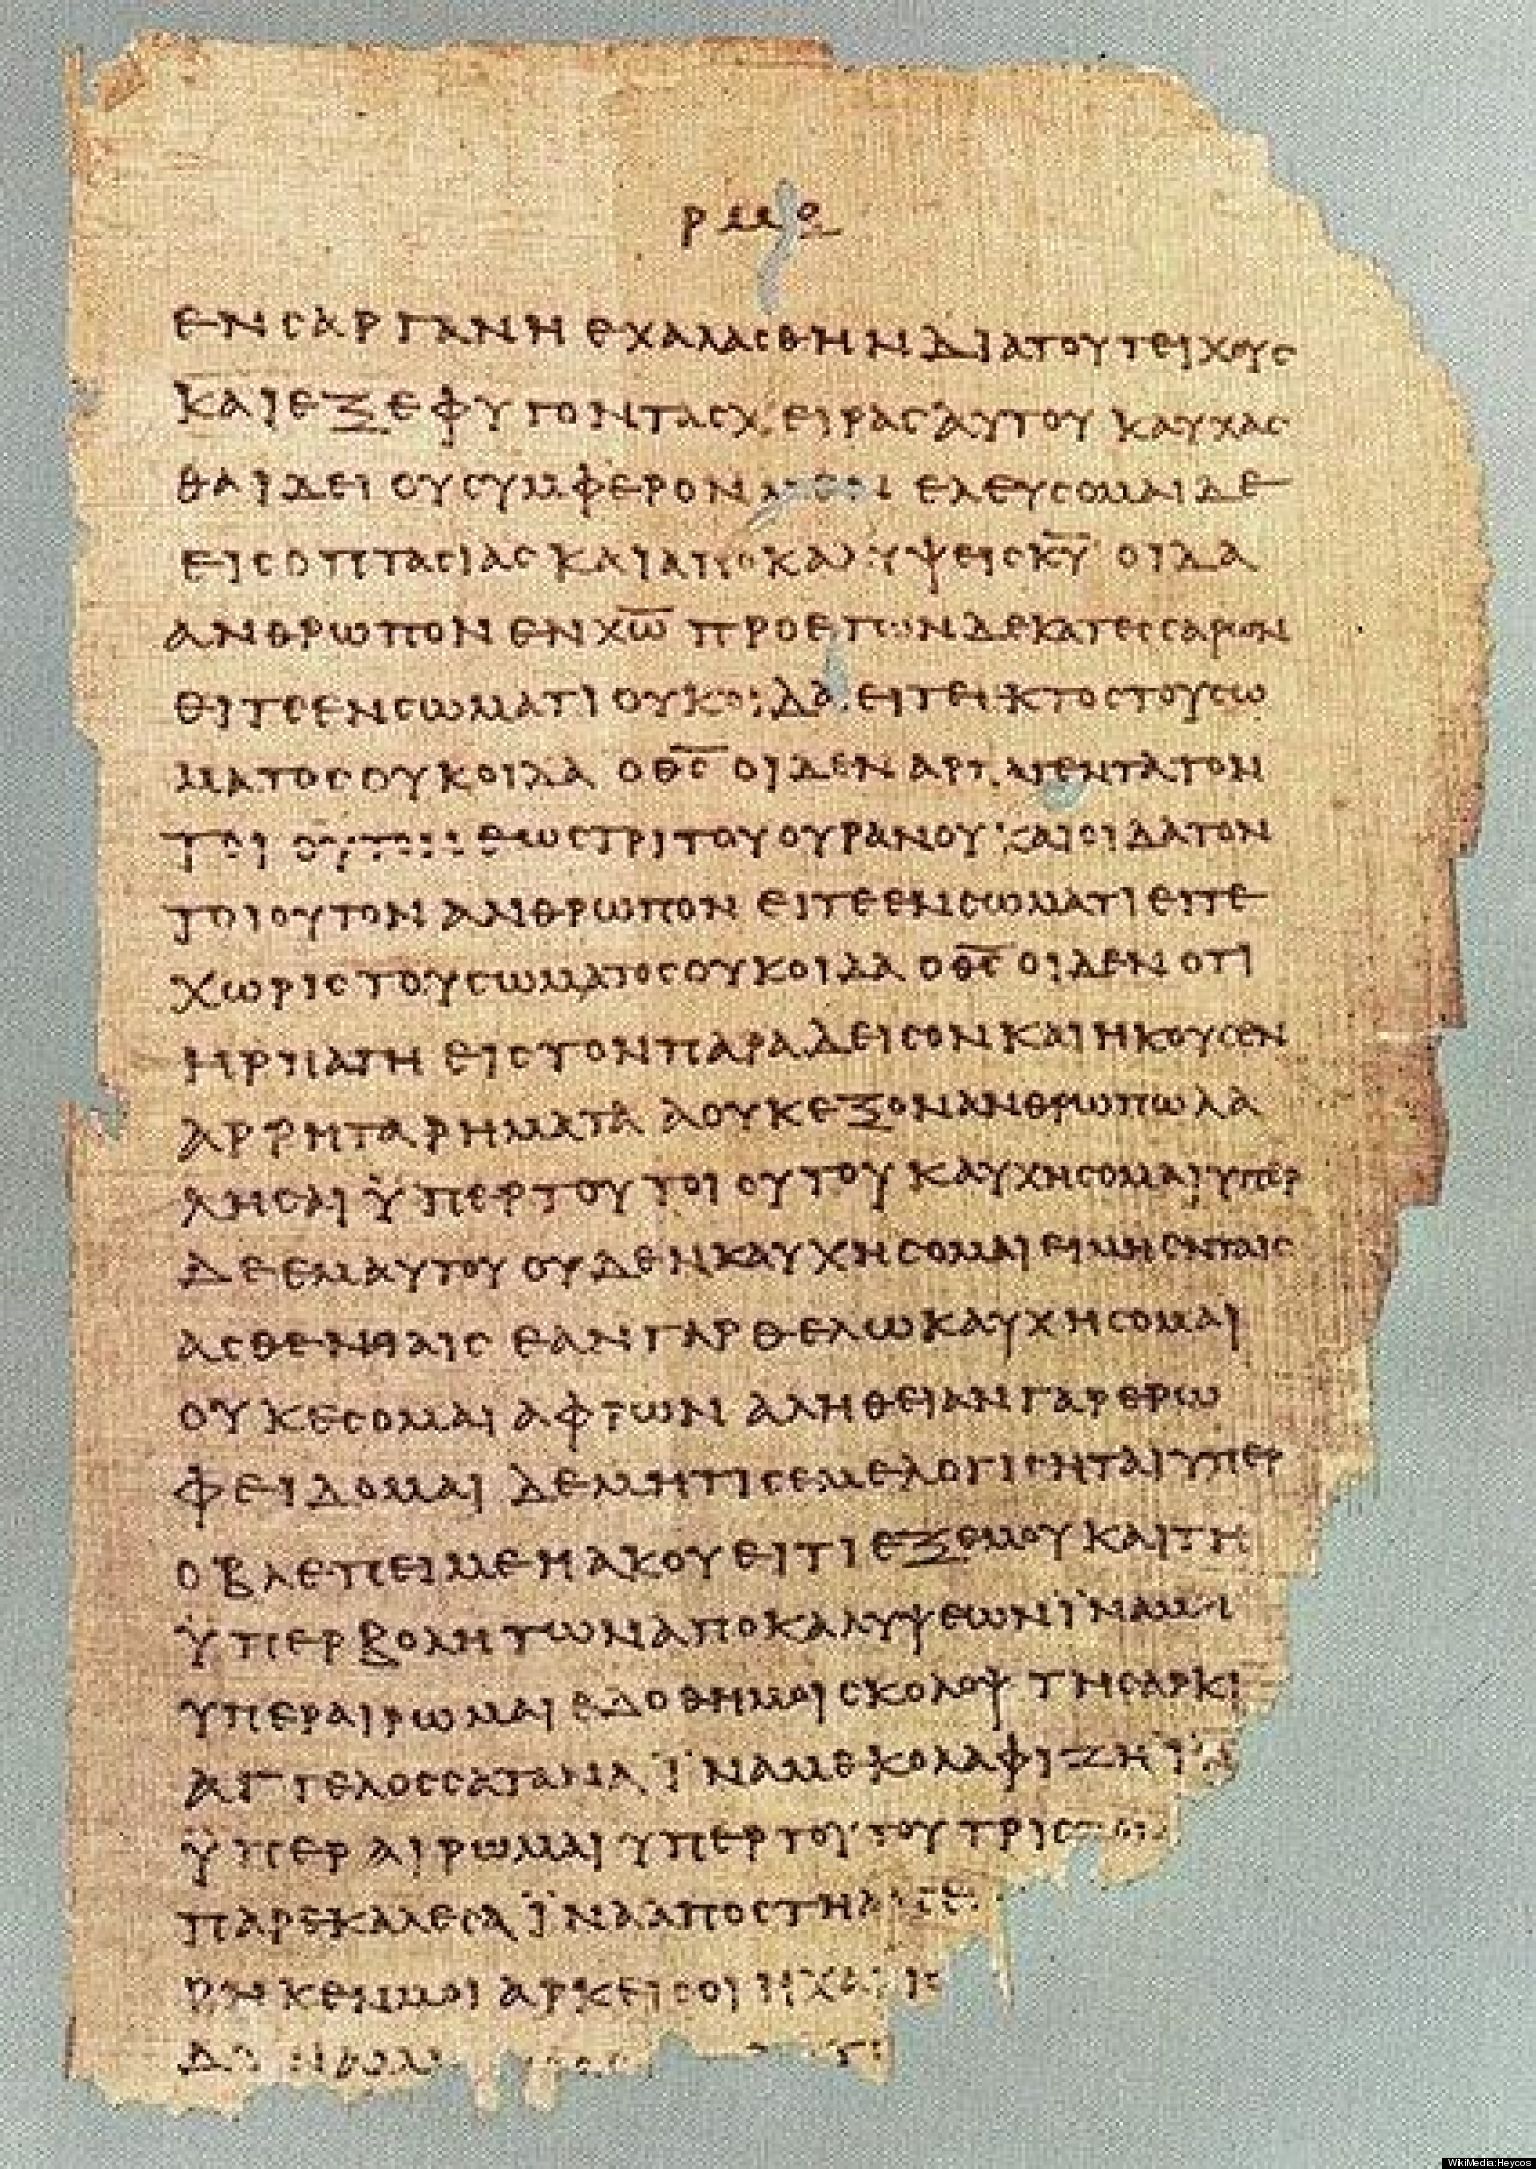 ΕΝ ΣΑΡΓΑΝΗ ΕΧΑΛΑΣΘΗΝ ΔΙΑ ΤΟΥ ΤΕΙΧΟΥΣ
ΚΑΙ ΕΞΕΦΥΓΟΝ ΤΑΣ ΧΕΙΡΑΣ ΑΥΤΟΥ ΚΑΥΧΑΣ
ΘΑΙ ΔΕΙ ΟΥ ΣΥΜΦΕΡΟΝ ΕΛΕΥΣΟΜΑΙ ΔΕ
ΕΙΣ ΟΠΤΑΣΙΑΣ ΚΑΙ ΑΠΟΚΑΛΥΨΕΙΣ Κ̅Υ̅ ΟΙΔΑ
ΑΝΘΡΩΠΟΝ ΕΝ Χ̅Ω̅ ΠΡΟ ΕΤΩΝ ΔΕΚΑΤΕΣΣΑΡΩΝ
ΕΙΤΕ ΕΝ ΣΩΜΑΤΙ ΟΥΚ ΟΙΔΑ ΕΙΤΕ ΕΚΤΟΣ ΤΟΥ ΣΩ
ΜΑΤΟΣ ΟΥΚ ΟΙΔΑ Ο Θ̅Σ̅ ΟΙΔΕΝ ΑΡΠΑΓΕΝΤΑ ΤΟΝ
ΤΟΙΟΥΤΟΝ ΕΩΣ ΤΡΙΤΟΥ ΟΥΡΑΝΟΥ ΚΑΙ ΟΙΔΑ ΤΟΝ
ΤΟΙΟΥΤΟΝ ΑΝΘΡΩΠΟΝ ΕΙΤΕ ΕΝ ΣΩΜΑΤΙ ΕΙΤΕ
ΧΩΡΙΣ ΤΟΥ ΣΩΜΑΤΟΣ ΟΥΚ ΟΙΔΑ Ο Θ̅Σ̅ ΟΙΔΕΝ ΟΤΙ
ΗΡΠΑΓΗ ΕΙΣ ΤΟΝ ΠΑΡΑΔΕΙΣΟΝ ΚΑΙ ΗΚΟΥΣΕΝ
ΑΡΡΗΤΑ ΡΗΜΑΤΑ Α ΟΥΚ ΕΞΟΝ ΑΝΘΡΩΠΩ ΛΑ
ΛΗΣΑΙ ΫΠΕΡ ΤΟΥ ΤΟΙΟΥΤΟΥ ΚΑΥΧΗΣΟΜΑΙ ΥΠΕΡ
ΔΕ ΕΜΑΥΤΟΥ ΟΥΔΕΝ ΚΑΥΧΗΣΟΜΑΙ ΕΙ ΜΗ ΕΝ ΤΑΙΣ
ΑΣΘΕΝΙΑΙΣ ΕΑΝ ΓΑΡ ΘΕΛΩ ΚΑΥΧΗΣΟΜΑΙ
ΟΥΚ ΕΣΟΜΑΙ ΑΦΡΩΝ ΑΛΗΘΕΙΑΝ ΓΑΡ ΕΡΩ
ΦΕΙΔΟΜΑΙ ΔΕ ΜΗ ΤΙΣ ΕΜΕ ΛΟΓΙΣΗΤΑΙ ΥΠΕΡ
Ο ΒΛΕΠΕΙ ΜΕ Η ΑΚΟΥΕΙ ΤΙ ΕΞ ΕΜΟΥ ΚΑΙ ΤΗ
ΫΠΕΡΒΟΛΗ ΤΩΝ ΑΠΟΚΑΛΥΨΕΩΝ ΪΝΑ ΜΗ
ΥΠΕΡΑΙΡΩΜΑΙ ΕΔΟΘΗ ΜΟΙ ΣΚΟΛΟΨ ΤΗ ΣΑΡΚΙ
ΑΓΓΕΛΟΣ ΣΑΤΑΝΑ ΪΝΑ ΜΕ ΚΟΛΑΦΙΖΗ
ΫΠΕΡΑΙΡΩΜΑΙ ΥΠΕΡ ΤΟΥΤΟΥ ΤΡΙΣ
ΠΑΡΕΚΑΛΕΣΑ ΪΝΑ ΑΠΟΣΤΗ
ΡΗΚΕΝ ΜΟΙ ΑΡΚΕΙ ΣΟΙ Η ΧΑΡΙΣ
WikiMedia:Heycos